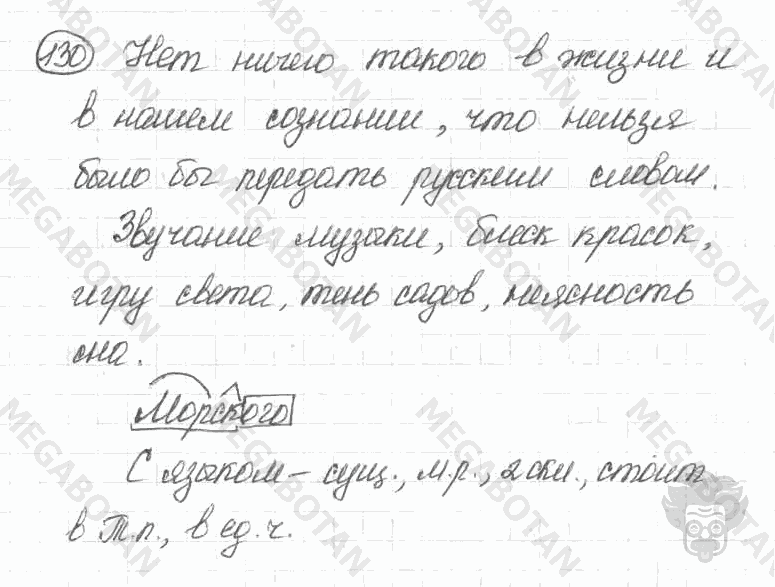 130 Нет ничего такого в жизни и
в нашем сознании, что нельзя
было бы передать русским словом.
Звучание музыки, блеск красок,
игру света, тень садов, неясность
сна.
Морского
С языком – сущ., м.р., 2 скл., стоит
в Т.п., в ед.ч.
MEGABOTAN